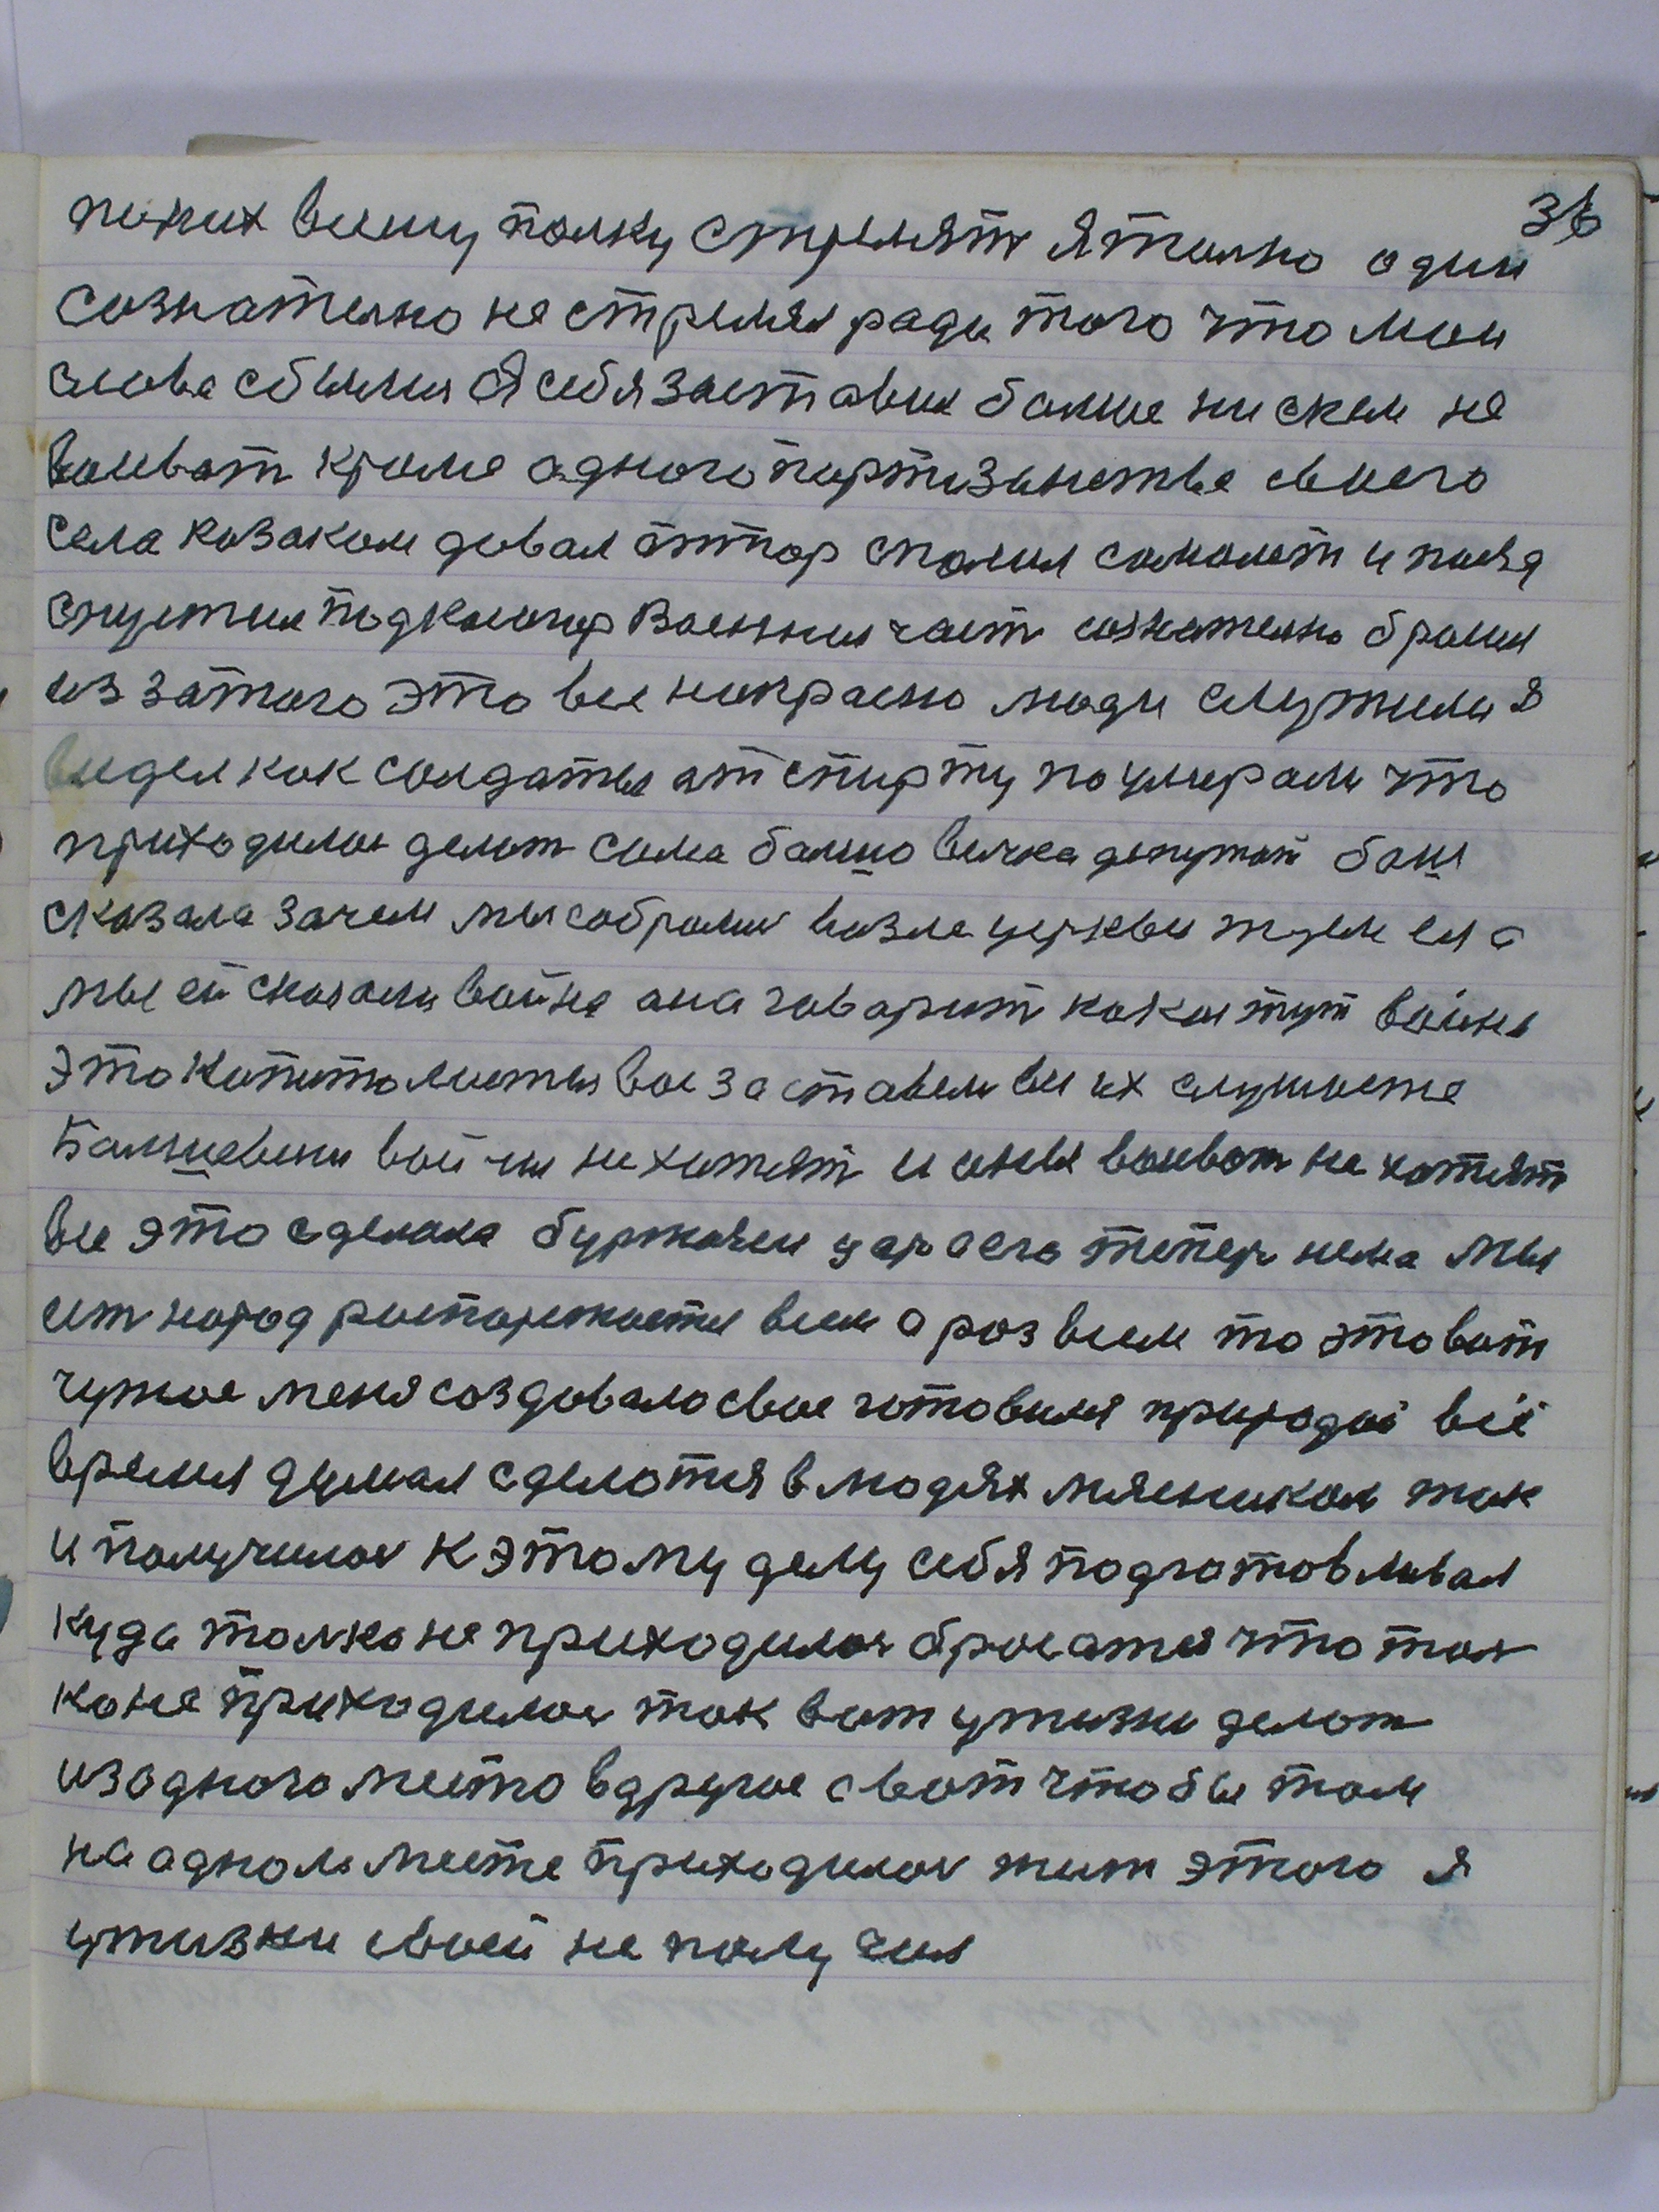 36
по них всиму полку стрелят я толко один
сознателно не стрелял ради того что мои
слова сбылис Я себя заставил болше ни скем не
воиват кроме адного партизанства своего
села козаком давал отпор спалил самолет и поезд
спустил подкалотор Военних част сознателно бросил
из затого это все напрасно люди служили я
видел как солдаты от спирту поумирали что
приходилос делит сама балшовичка депутат баш
сказала зачем мы собралис возле церквы ждем ея а
мы ей сказали война она говорит какая тут война
это капиталисты вас заставели вы их слушаете
Балшевики войны не хотят и оны воиват не хотят
все это сделала буржазия царя его тепер нема мы
ест народ распаряжается всем а роз всем то это вот
чужое меня создавало свое готовился природой всё
время думал сделатся в людях мясн
иком так
и получилос К этому делу себя подготовливал
куда толко не приходилос бросатся что тол
ко не приходилос так вот ужизни делат
из одного место в другое а вот чтобы там
на адном месте приходилос жит этого я
ужизни своей не получил